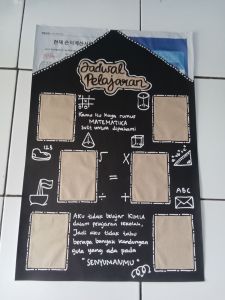 Jadwal
Pelajaran
Kamu itu kaya rumus
MATEMATIKA
Sulit untuk dipahami
123
÷
×
=
+
ABC
Aku tidak belajar KIMIA
dalam pelajaran sekolah,
Jadi aku tidak tahu
berapa banyak kandungan
gula yang ada pada
SENYUMANMU